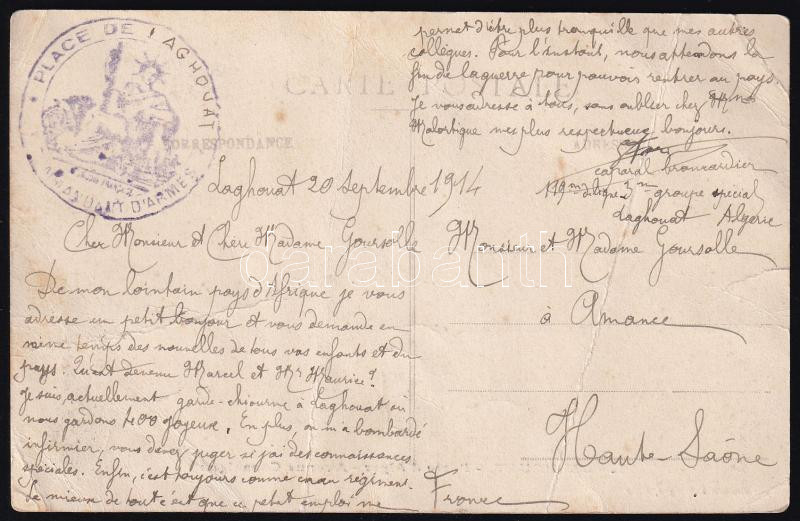 PLACE DE LAGHOUAT
COMMANDANT D'ARMES
CARTE POSTALE
CORRESPONDANCE
ADRESSE
Laghouat 20 septembre 1914
Cher Monsieur et Chère Madame Goursolle
De mon lointain pays d'Afrique je vous
adresse un petit bonjour et vous demande en
même temps des nouvelles de tous vos enfants et du
pays. Qu'est devenu Marcel et Mr Maurice?
Je suis actuellement garde-chiourme à Laghouat où
nous gardons 400 joyeux. En plus, on m'a bombardé
infirmier, vous devez juger si j'ai des connaissances
spéciales. Enfin, c'est toujours comme ça au régiment.
Le mieux de tout c'est que ce petit emploi me
permet d'être plus tranquille que mes autres
collègues. Pour l'instant, nous attendons la
fin de la guerre pour pouvoir rentrer au pays.
Je vous adresse à tous, sans oublier chez Mme
Malortigue mes plus respectueux bonjours.
caporal brancardier
groupe spécial
Laghouat Algérie
Monsieur et Madame Goursolle
à Amance
Haute-Saône
France
darabanth